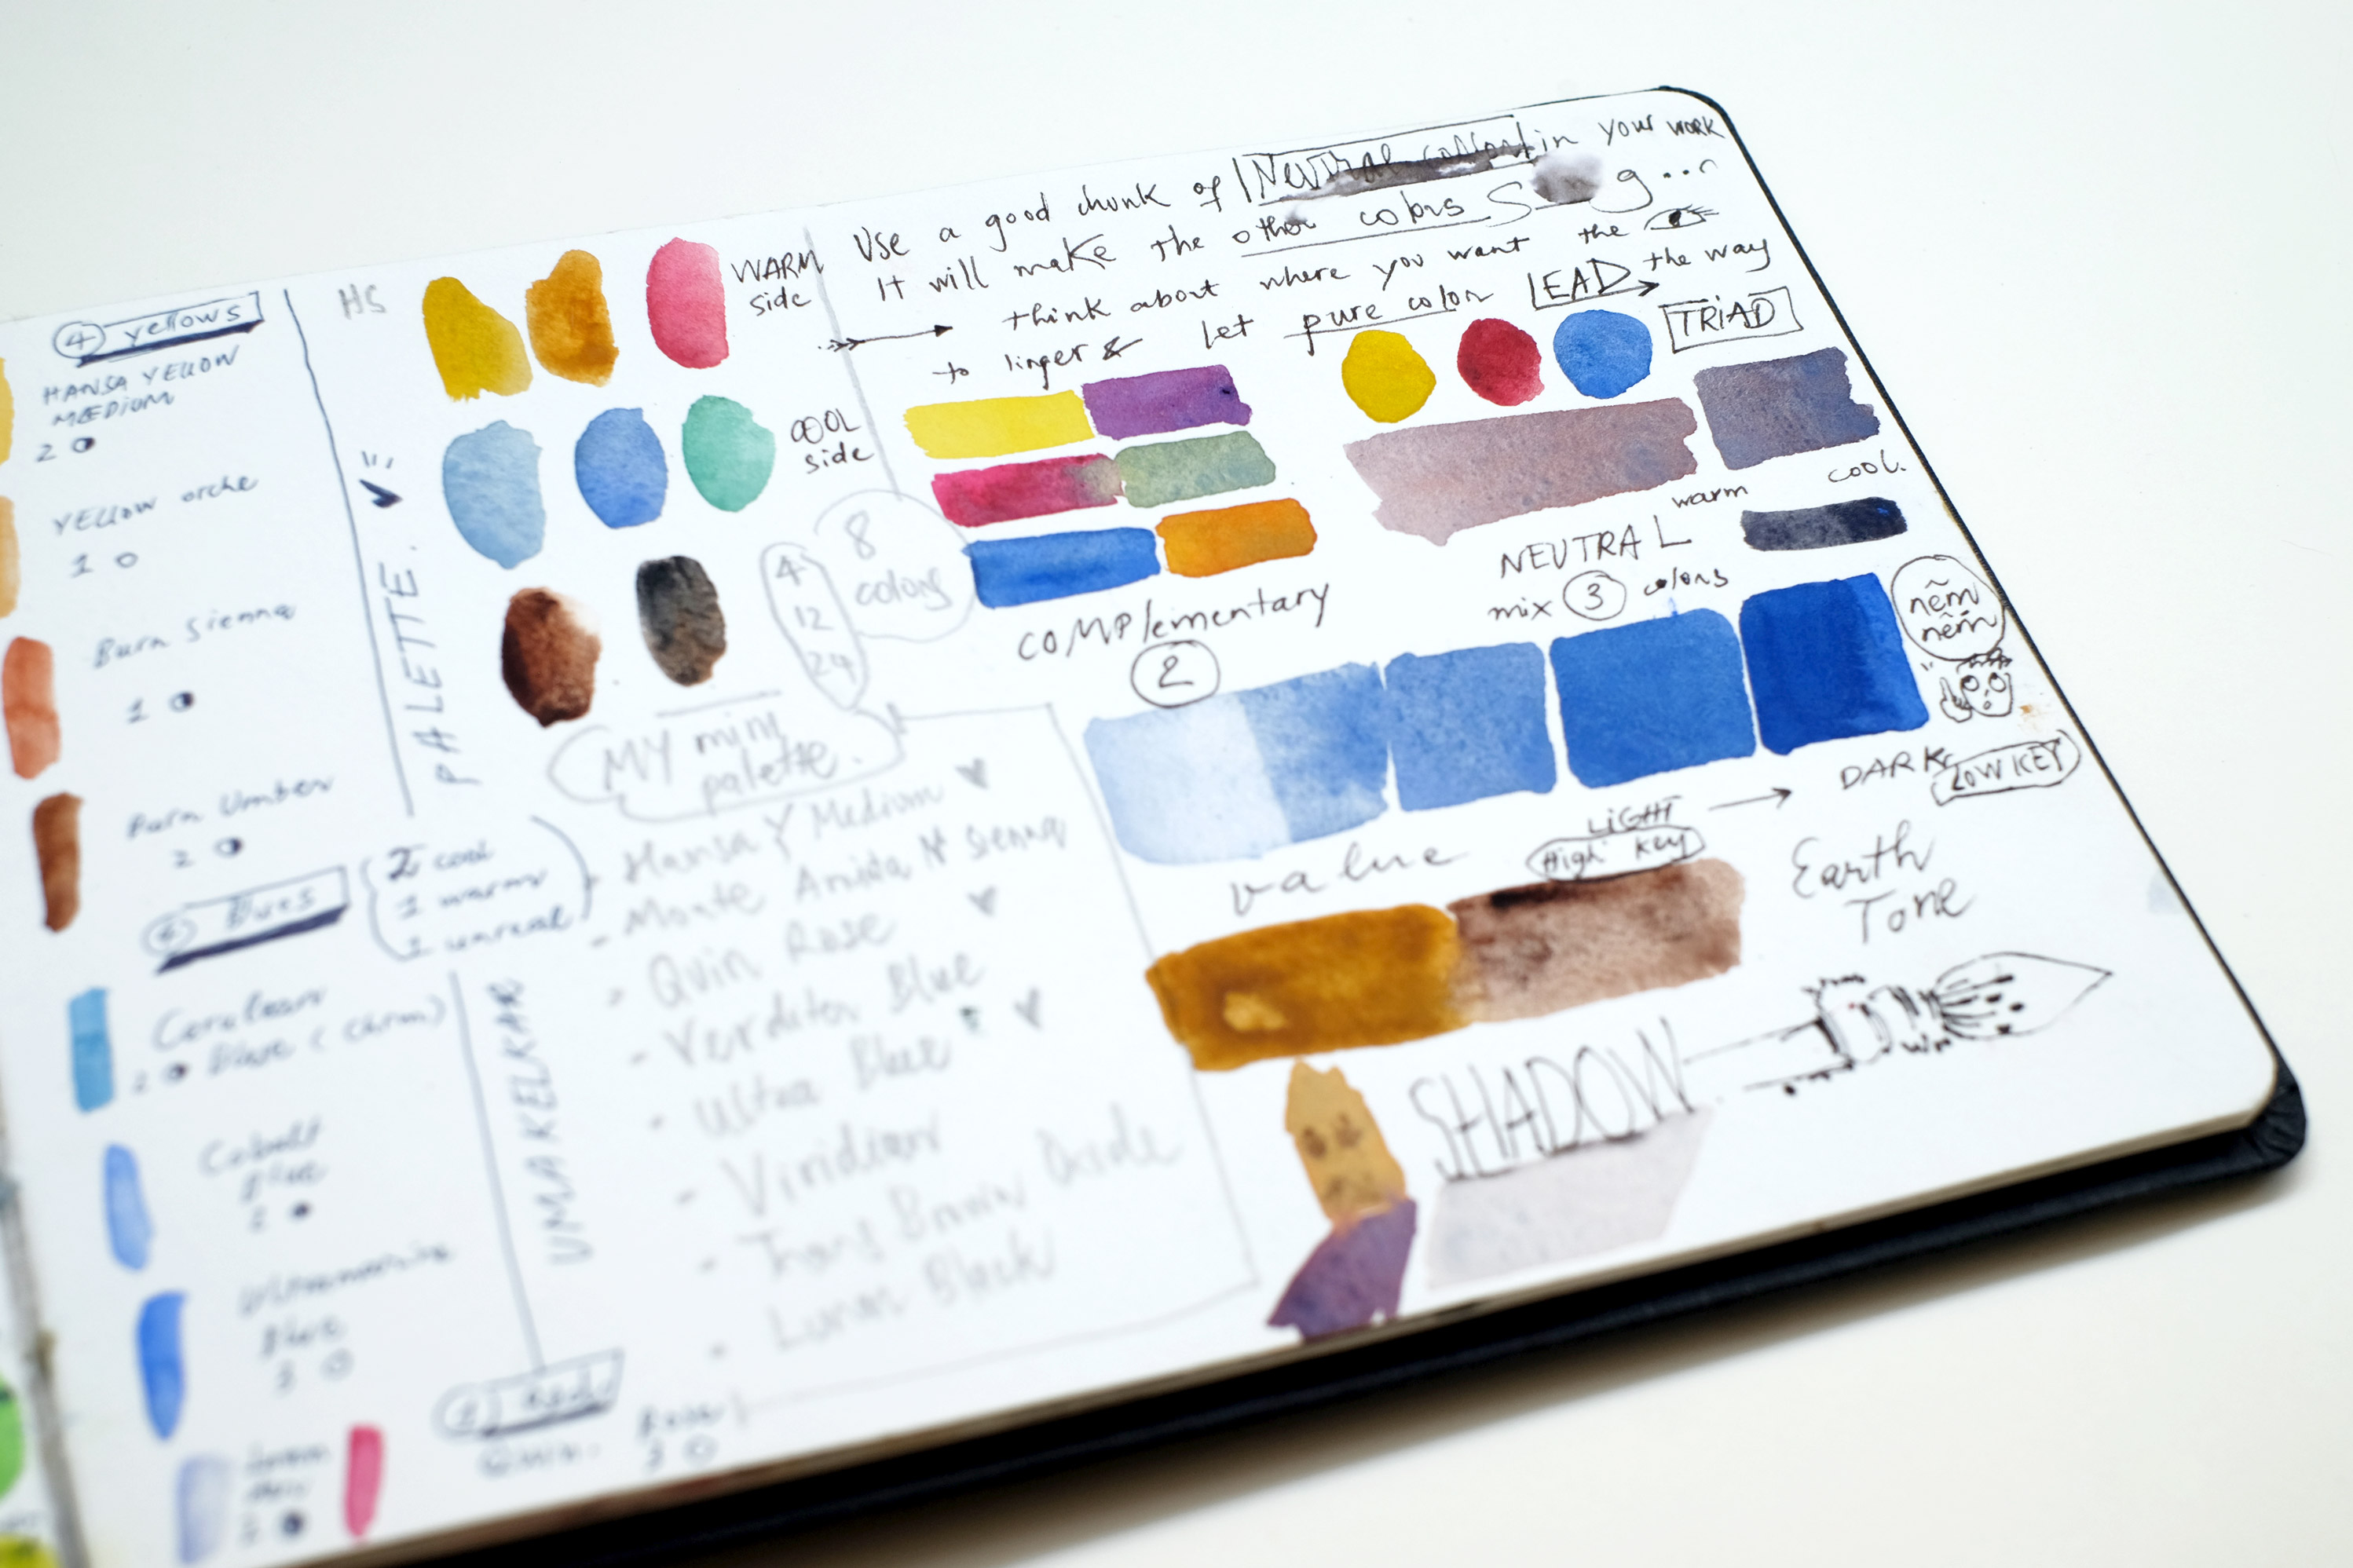 4 yellows
HANSA YELLOW
MEDIUM
2
YELLOW orche
1
Burn Sienna
1
Burn Umber
2
4 Blues
2 cool
1 warm
1 unreal
Cerulean
2 Blue (Chrm)
Cobalt
Blue
2
Ultramarine
Blue
3
2 Red
Quin.
Rose
3
HS
PALETTE.
UMAKELKAR
WARM
side
COOL
side
8
colors
4
12
24
MY mini
palette.
- Hansa Y Medium
- Monte Amiata Nt Sienna
- Quin Rose
- Verditer Blue
- Ultra Blue
- Viridian
- Trans Brown Oxide
- Lunar Black
Use a good chunk of Neutral colors in your work
It will make the other colors S n g...
think about where you want the
to linger & let pure color LEAD the way
TRIAD
COMPlementary
2
warm
cool.
NEUTRAL
mix 3 colors
nẽm
nẽm
value
LIGHT
High Key
DARK
LOW KEY
Earth
Tone
SHADOW